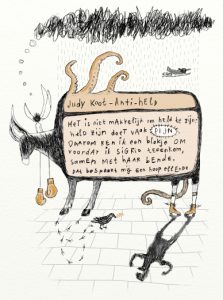 Judy Koot - Anti-held
Het is niet makkelijk om held te zijn.
Held zijn doet vaak PIJN.
Daarom ren ik een blokje om
voordat ik Sigrid tegenkom,
samen met haar bende.
Dat bespaart mij een hoop ellende